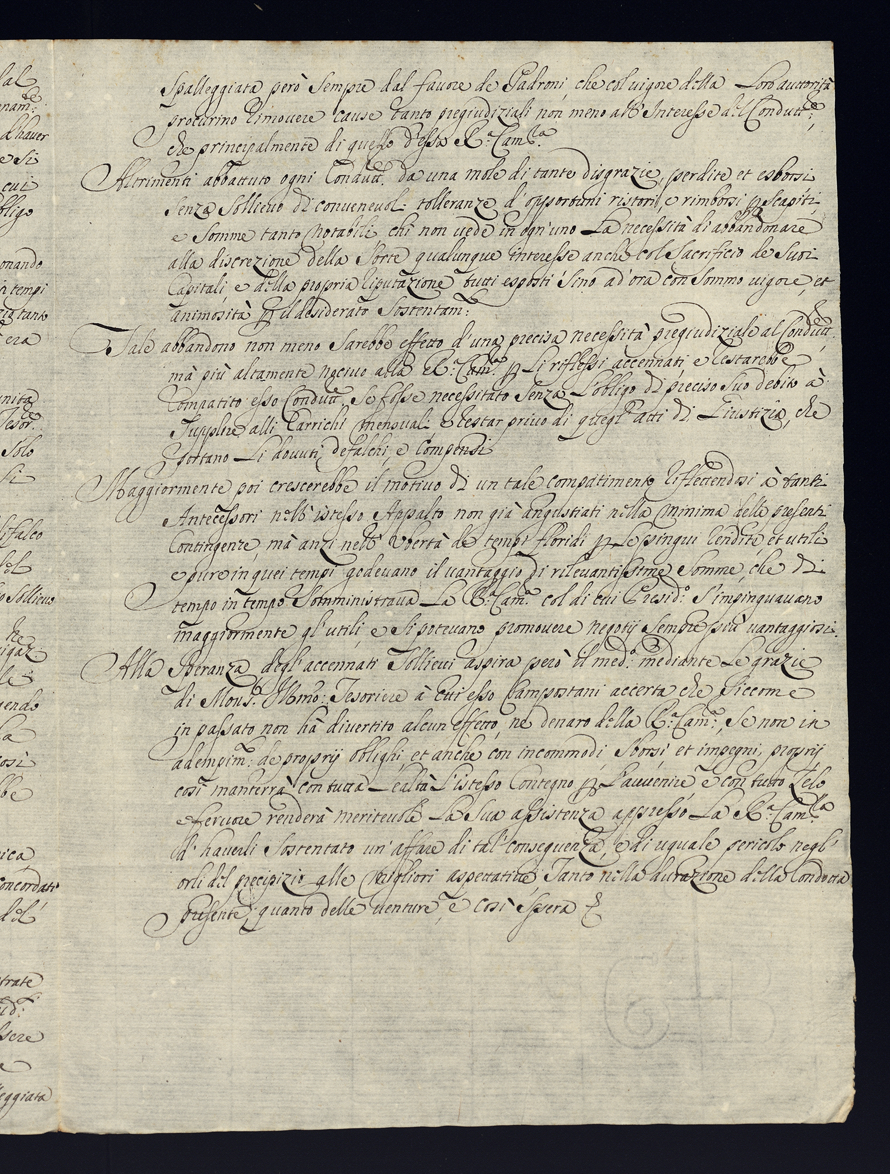 Spalleggiata però sempre dal favore de Padroni, che col vigore della Loro autorità
procurino rimovere cause tanto pregiudiziali non meno all'Interesse del Condutt:re,
che principalmente di quello d'essa R:a Cam:la
Altrimenti abbattuto ogni Condutt:re da una mole di tante disgrazie, perdite et esborsi
senza sollievo di convenevol: tolleranze d'opportuni ristori, e rimborsi p scapiti,
e somme tanto notabili chi non vede in ogn'uno La necessità di abbandonare
alla discrezione della Sorte qualunque interesse anche col Sacrificio de Suoi
Capitali e della propria riputazione tutti esposti sino ad'ora con sommo vigore, et
animosità p il desiderato Sostentam:
Tale abbandono non meno Sarebbe effetto d'una precisa necessità pregiudiziale al Condutt:re,
mà più altamente nocivo alla R:a Cam:a p Li riflessi accennati, e restarebbe
Compatito esso Condutt:re Se fosse necessitato senza L'obligo di preciso suo debito à
Supplire alli Carrichi mensuali e restar privo di quegl'atti di Giustizia, che
portano Li dovuti defalchi, e Compensi
Maggiormente poi crescerebbe il motivo di un tale compatimento riflettendosi à tanti
Antecessori nell'istesso Appalto non già angustiati nella minima delle presenti
Contingenze, mà anzi nell'Ubertà de tempi floridi p Le pingui rendite et utili
e pure in quei tempi godevano il vantaggio di rilevantissime Somme, che di
tempo in tempo Somministrava La R:a Cam:a col di cui Presid:o S'impinguavano
maggiormente gl'utili, e si potevano promovere negotij sempre più vantaggiosi.
Alla Speranza degl'accennati Sollievi aspira però il med:o mediante Le grazie
di Mons:r Illmo: Tesoriere à cui esso Campostani accerta che siccome
in passato non hà divertito alcun effetto, ne denaro della R:a Cam:a, Se non in
adempim: de proprij oblighi, et anche con incommodi, Sborsi, et impegni proprij
così manterrà con tutta Lealtà L'istesso Contegno p L'avvenire e con tutto Zelo
e fervore renderà meritevole La Sua assistenza appresso La R:a Cam:la
d'haverli Sostentato un'affare di tal'conseguenza, e di uguale pericolo negl'
orli del precipizio alle migliori aspettative Tanto nella durazione della Condotta
presente, quanto delle venture, e così spera &